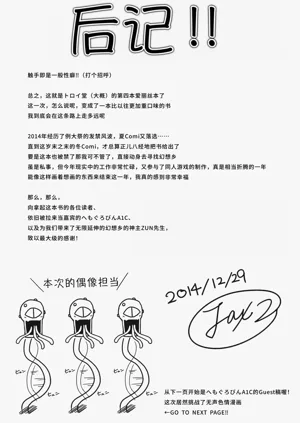 后记!!
触手即是一般性癖!!（打个招呼）
总之，这就是トロイ堂（大概）的第四本爱丽丝本了
这一次，怎么说呢，变成了一本比以往更加重口味的书
我到底会在这条路上走多远呢
2014年经历了例大祭的发禁风波，夏Comi又落选……
直到这岁末之末的冬Comi，才总算正儿八经地把书给出了
要是这本也被禁了那我可不管了，直接动身去寻找幻想乡
虽是私事，但今年现实中的工作非常忙碌，又参与了同人游戏的制作，真是相当折腾的一年
能像这样画着想画的东西来结束这一年，我真的感到非常幸福
那么，那么。
向拿起这本书的各位读者、
依旧被拉来当嘉宾的へもぐろびんA1C、
以及为我们带来了无限延伸的幻想乡的神主ZUN先生，
致以最大级的感谢！
本次的偶像担当
2014/12/29
ビュン
ビュン
ビュン
ビュン
从下一页开始是へもぐろびんA1C的Guest稿喔！
这次居然挑战了无声色情漫画
←GO TO NEXT PAGE!!